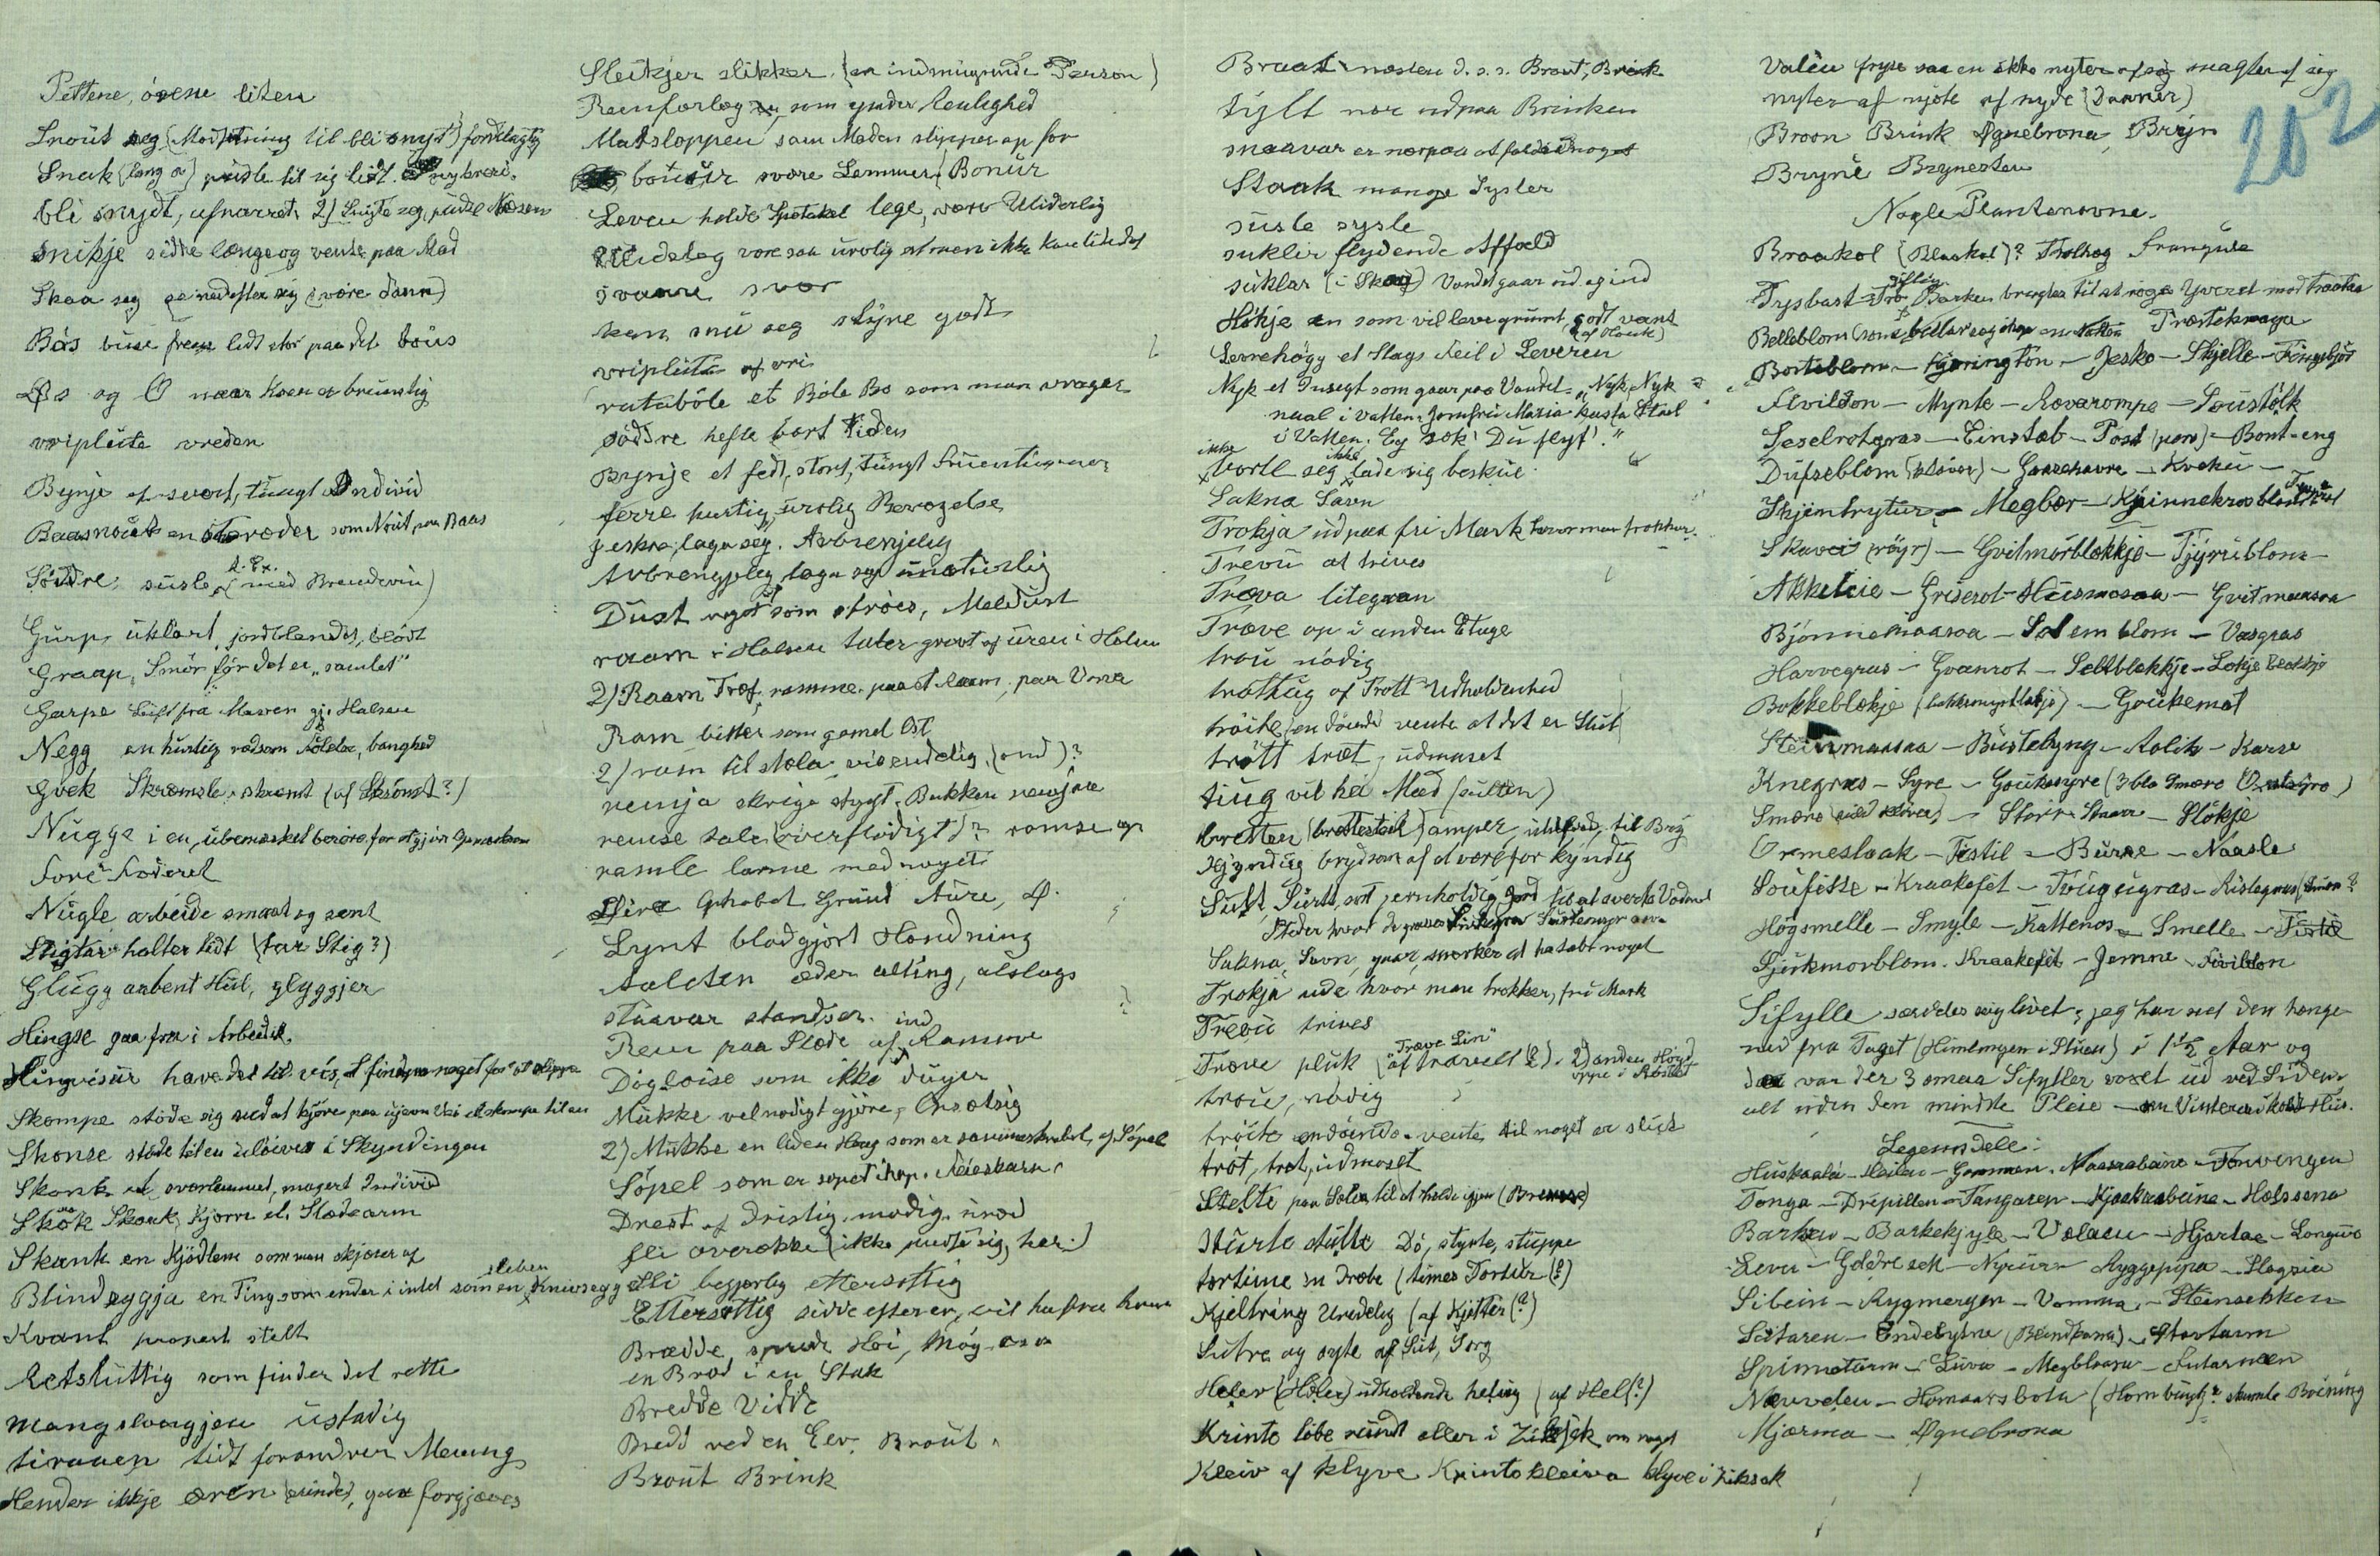 Pittene, ósene liten
Snout seg (Modsetning til bli snyt) fordelagtig
Snak (lang a) pusle til sig lidt.
bli snydt, ufnarret, 2) Snyte seg, pudse Næsen
snikje sidde længe og vente paa Mad
Skaa seg se nedefter sig (være dann)
Bás buse frem lidt stor paa det bous
Øs og O naar Koen er brunstig
vripleite vreden
Bynje et svert, tungt Individ
Baasnout en som Nout paa Baas
Söddre susle (d. Ex. med Brændevin)
Gurp, uklart, jordblandet, blödt
Graap, Smör för det er "samlet"
Garpe Luft fra Maven gj. Halsen
Negg en hurtig rædsom Følelse, banghed
Gvek Skræmsle, skræmt (af Skrömt?)
Nugge i en, ubemærket berøre for at gjøre opmærksom
Fore Foderet
Nugle arbeide smaat og sent
Stigtar halter lidt (tar Stig?)
Glugg aabent Hul, glyggjer
Hingse gaa fra i Arbeidet.
Hingvisur have det til vis, at finde paa noget for at slippe
Skompe støde sig ved at kjøre paa ujevn Vei el. skompe til en
Skonse støde til en uløives i Skyndingen
Skonk et overlemmet, magert Individ
Skók Skaak, Kjørre el. Slædearm
Skank en Kjödlem som man skjærer af
Blindeggja en Ting som ender i intet som en sleben Knivsegg
Kvant propert stelt
Retsluttig som finder det rette
Mangslaagjen ustadig
tiraaen tidt forandrer Mening
Hender ikkje æren (erindre), gaar forgjæves
Sleikjer slikker. (en indsmigrende Person)
Reenforlog en som ynder Renlighed
Matsloppen som Maden slipper op for
boutur svære Lemmer (Bonur
Leven holde Spetakel lege, være Uliderlig
Ulidsleg være saa urolig at man ikke kan lide det
svaare svær
kan snu seg styre godt
vripleita af vri
rataböle et Böle Bo som man vrager
söddre hefte bort Tiden
Brynje et fedt, stort, tungt Fruentimmer
ferre hurtig, urolig Bevægelse
jeskra, laga seg. Avbrenjeleg
Avbrengjeleg laga seg unaturlig
Dust noget som strøes, Meldust
raam i Halsen tuter grovt af uren i Halsen
2) Raam Træf, ramme paa et raam, paa Vona
Ram bitter som gamel Ost
2) ram til stela, visendelig (ond)?
renja skrige stygt. Bukken renjar
reuse tale (overflödigt)? ramse op
ramle larme med noget
Lire Ophobet Grund Aure, Ø.
Lynt bladgjort Hondning
Aaleten æder alting, alslags
staavar standser.
Reim paa Slæde af Ramme
Dögloise som ikke duger
Mukke velnødigt gjöre, Onsølsig
2) Mukke en liden Haug som er sammenskrabet, af Sópel
Sópel som er sopet ihop. Feieskarn
Drest af dristig, modig, uræd
fli overække (ikke pudse sig, her.)
Fli begjærlig ettersøttig
Ettersøttig sidde efter en, vil ha fra ham
Brædde, sprede Höi, Møg osv
en Bræd i en Stak
Bredde Vidde
Bredd ved en Elv. Brout
Brout Brink
Braat næsten d. s. s. Brout, Brink
tylt nær udpaa Brinken
snaavar er nærpaa at falde i noget
Staak mange Sysler
susle sysle
suklir flydende Affald
suklar (i Skog) Vandet gaar ud og ind
Hökje en som vil leve grumt, godt vant (af Hauk)
Levrehögg et Slags Feil i Leveren
Nyk et Insegt som gaar paa Vandet. "Nyk, Nyk
naal i Vatten. Jomfru Maria kasta Staal
i Vatten. Eg sök! Du flyt!"
ikke
Vorte seg ikke lade sig beskue
Sakna Savn
Trokja ud paa fri Mark hvor man trokker.
Trevü at trives
Træva litegran
Træve op i anden Etage
trou nödig
trottug af Trott Udholdenhed
tröite (en döende) vente at det er Slut
trött træt, udmaset
tiug vil hei Mad (sulten)
bretten (brettestek) amper, uhilfred, til Bry
Kjyndug brydsom af at være for kyndig
Sutt, Surt, sot jernholdig Jord til at sverte Vadmel
Steder hvor de graver
Sakna, Savn, gaar, merker at ha tabt noget
Trokja ude hvor man trokker, fri Mark
Trevü trives
Træve pluk ("Træve Lin" af travelt (?)). 2) anden Høyd oppe i Röstet
trou, nödig
tröite endöende. vente til noget er slut
tröt, træt, udmaset
Stelte paa Solen til at holde igjen (Bremse)
Sturte stutte Dö, styrte, stuppe
tortime en Dræbe (times Tortur (?)
Kjeltring Uredelig (af Kjetter (?)
Sutra og syte af Sut, Sorg
Heler (Hölet) udholdende heling (af Hel(?)
Krinte löbe rundt eller i Ziksak om noget
Kleiv af klyve Krintekleiva klyve i Ziksak
Valen fryse saa en ikke nyter af sig magter af sig
nyter af njote af nyde (Danner)
Broon Brink Øgnebrona, Bryn
Bryne Brynesten
Nogle Plantenavne.
Braakol (Blaakol)? Trolhog Frangula
Tysbast giftig Tro Barken brugtes til at røge Yveret mod Troota
Belleblom (som bellar seg ihop om Natten Træstekraga
Bosteblom - Kjerringtön - Jesko - Skjelle - Fingebjör
Fivildon - Mynte - Rævarompe - Soustölk
Seselrotgras - Einstab - Post (pors) - Bont-eng
Dufseblom (klöver) - Gaasehavre - Kveku -
Skjintrytur - Megbær - Kjinnekrosblom
Skavei (röyr) - Gvitmórblokkje - Tjyrriblom -
Akkeleie - Griserot - Husmasaa - Gvitmaasaa
Bjönnemaasaa - Solemblom - Vasgras
Harvegras - Gvanrot - Seltblakkje - Lokje Blakkje
Bokkeblekje (bokkemyrtblekje) - Goukemat
Steinmaasaa - Bustelyng - Rolik - Karse
Knegras - Syre - Gouksyre (3 bla Smære Oxalsyre)
Smære (vild klöver) - Storr - Staar - Slökje
Ormeslaak - Testil - Burre - Naasle
Soufisse - Kraakefit - Trugugras - Rislegras
Högsmelle - Smyle - Kattenos - Smelle - Tistil
Sjirkmorblom. Kraakefit - Jemne. Fivildon
Sifylle særdeles seiglivet, jeg har set den hænge
ned fra Taget (Himlingen i Stuen) i 1½ Aar og
der var der 3 smaa Sifyller voxet ud ved Siden
alt uden den mindste Pleie - om Vinteren i koldt Hus.
Legemsdele:
Huskaala - Heilen - Gommen. Naasabeine - Tonvengen
Tonga - Drepillen - Tangaren - Kjaakaabeine - Halssena
Barken - Barkekjyle - Velaen - Hjartae - Longuo
Levra - Galdresek - Nyrur - Ryggepipa - Slogsia
Sibein - Rygmergen - Vomma - Steinsekken
Sutaren - Endetytne (Blindtarm) - Stortarm
Spinnetarm - Luva - Megblaasa - Futarneen
Navvelen - Homaarsbota (Horn bugt? skumle Boining
Kjærma - Øgnebrona
202